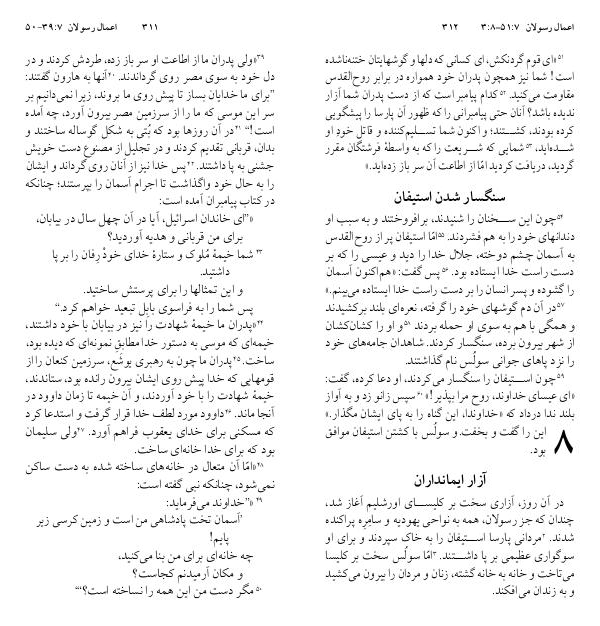 اعمال رسولان ۳۹:۷-۵۰ ۳۱۱
۳۹«ولی پدران ما از اطاعت او سر باز زده، طردش کردند و در
دل خود به سوی مصر روی گرداندند. ۴۰آنها به هارون گفتند:
”برای ما خدایان بساز تا پیش روی ما بروند، زیرا نمی‌دانیم بر
سر این موسی که ما را از سرزمین مصر بیرون آورد، چه آمده
است!“ ۴۱در آن روزها بود که بُتی به شکل گوساله ساختند و
بدان، قربانی تقدیم کردند و در تجلیل از مصنوع دست خویش
جشنی به پا داشتند. ۴۲پس خدا نیز از آنان روی گرداند و ایشان
را به حال خود واگذاشت تا اجرام آسمان را بپرستند؛ چنانکه
در کتاب پیامبران آمده است:
«”ای خاندان اسرائیل، آیا در آن چهل سال در بیابان،
برای من قربانی و هدیه آوردید؟
۴۳ شما خیمۀ مُلوک و ستارۀ خدای خودْ رِفان را بر پا
داشتید.
و این تمثالها را برای پرستش ساختید.
پس شما را به فراسوی بابِل تبعید خواهم کرد.“
۴۴«پدران ما خیمۀ شهادت را نیز در بیابان با خود داشتند،
خیمه‌ای که موسی به دستور خدا مطابق نمونه‌ای که دیده بود،
ساخت. ۴۵پدران ما چون به رهبری یوشَع، سرزمین کنعان را از
قومهایی که خدا پیش روی ایشان بیرون رانده بود، ستاندند،
خیمۀ شهادت را با خود آوردند، و آن خیمه تا زمان داوود در
آنجا ماند. ۴۶داوود مورد لطف خدا قرار گرفت و استدعا کرد
که مسکنی برای خدای یعقوب فراهم آورد. ۴۷ولی سلیمان
بود که برای خدا خانه‌ای ساخت.
۴۸«امّا آن متعال در خانه‌های ساخته شده به دست ساکن
نمی‌شود، چنانکه نبی گفته است:
۴۹ «”خداوند می‌فرماید:
’آسمان تخت پادشاهی من است و زمین کرسی زیر
پایم!
چه خانه‌ای برای من بنا می‌کنید،
و مکان آرمیدنم کجاست؟
۵۰ مگر دست من این همه را نساخته است؟‘“
اعمال رسولان ۵۱:۷-۳:۸ ۳۱۲
۵۱«ای قوم گردنکش، ای کسانی که دلها و گوشهایتان ختنه‌ناشده
است! شما نیز همچون پدران خود همواره در برابر روح‌القدس
مقاومت می‌کنید. ۵۲کدام پیامبر است که از دست پدران شما آزار
ندیده باشد؟ آنان حتی پیامبرانی را که ظهور آن پارسا را پیشگویی
کرده بودند، کشتند؛ و اکنون شما تسلیم‌کننده و قاتل خودِ او
شده‌اید، ۵۳شمایی که شریعت را که به واسطۀ فرشتگان مقرر
گردید، دریافت کردید امّا از اطاعت آن سر باز زده‌اید.»
سنگسار شدن استیفان
۵۴چون این سخنان را شنیدند، برافروختند و به سبب او
دندانهای خود را به هم فشردند. ۵۵امّا استیفان پر از روح‌القدس
به آسمان چشم دوخته، جلال خدا را دید و عیسی را که بر
دست راست خدا ایستاده بود. ۵۶پس گفت: «هم‌اکنون آسمان
را گشوده و پسر انسان را بر دست راست خدا ایستاده می‌بینم.»
۵۷در آن دم گوشهای خود را گرفته، نعره‌ای بلند برکشیدند
و همگی با هم به سوی او حمله بردند ۵۸و او را کشان‌کشان
از شهر بیرون برده، سنگسار کردند. شاهدان جامه‌های خود
را نزد پاهای جوانی سولُس نام گذاشتند.
۵۹چون استیفان را سنگسار می‌کردند، او دعا کرده، گفت:
«ای عیسای خداوند، روح مرا بپذیر!» ۶۰سپس زانو زد و به آواز
بلند ندا درداد که «خداوند، این گناه را به پای ایشان مگذار.»
۸ این را گفت و بخفت. و سولُس با کشتن استیفان موافق
بود.
آزار ایمانداران
در آن روز، آزاری سخت بر کلیسای اورشلیم آغاز شد،
چندان که جز رسولان، همه به نواحی یهودیه و سامِرِه پراکنده
شدند. ۲مردانی پارسا استیفان را به خاک سپردند و برای او
سوگواری عظیمی بر پا داشتند. ۳امّا سولُس سخت بر کلیسا
می‌تاخت و خانه به خانه گشته، زنان و مردان را بیرون می‌کشید
و به زندان می‌افکند.